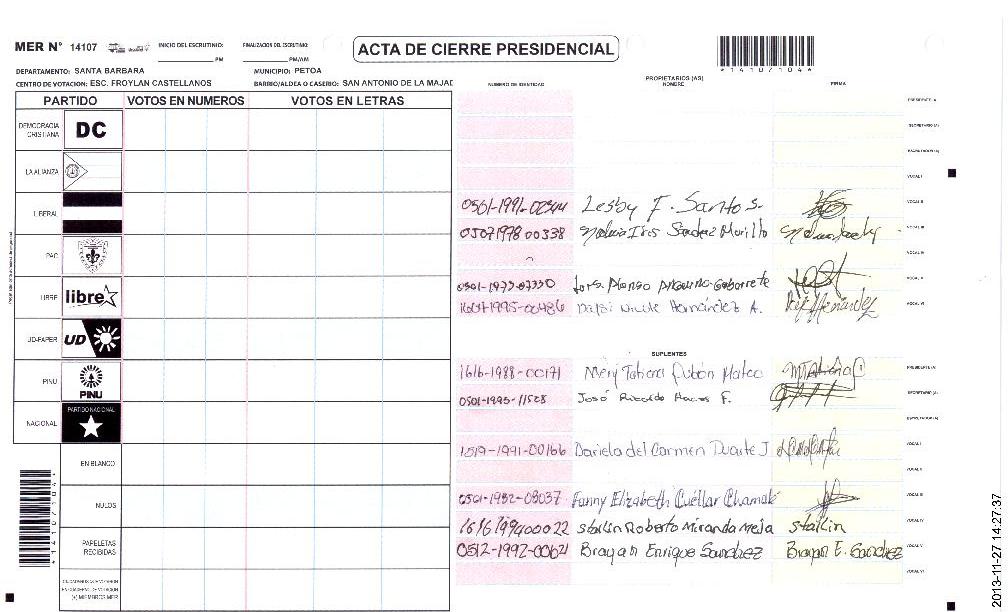 MER N° 14107
INICIO DEL ESCRUTINIO: PM
FINALIZACION DEL ESCRUTINIO: PM/AM
ACTA DE CIERRE PRESIDENCIAL
*14107104*
DEPARTAMENTO: SANTA BARBARA MUNICIPIO: PETOA
CENTRO DE VOTACION: ESC. FROYLAN CASTELLANOS BARRIO/ALDEA O CASERIO: SAN ANTONIO DE LA MAJAD
PARTIDO VOTOS EN NUMEROS VOTOS EN LETRAS
DEMOCRACIA CRISTIANA DC
LA ALIANZA
LIBERAL
PAC
LIBRE libre
UD-FAPER UD
PINU PINU
NACIONAL PARTIDO NACIONAL
EN BLANCO
NULOS
PAPELETAS RECIBIDAS
(+) MIEMBROS MER
*14107104*
NUMERO DE IDENTIDAD PROPIETARIOS (AS) NOMBRE FIRMA
PRESIDENTE (A)
SECRETARIO (A)
ESCRUTADOR (A)
VOCAL I
0501-1991-02544 Lesby F. Santos. VOCAL II
05071978 00338 Iris Sanchez Murillo VOCAL III
VOCAL IV
0501-1973-07330 Alonso VOCAL V
1601-1995-00486 Hernández A. Hernández VOCAL VI
SUPLENTES
1616-1988-00171 Mery Tatiana Pubón Mateo PRESIDENTE (A)
0501-1993-11528 José Ricardo F. SECRETARIO (A)
ESCRUTADOR (A)
1519-1991-00166 Dariela del Carmen Duarte J. VOCAL I
VOCAL II
0501-1982-08037 Fanny Elizabeth Cuéllar Chamalé VOCAL III
1616199400022 stalin Roberto Miranda Mejia stalin VOCAL IV
0512-1992-00621 Brayan Enrique Sanchez Brayan E. Sanchez VOCAL V
VOCAL VI
2013-11-27 14:27:37